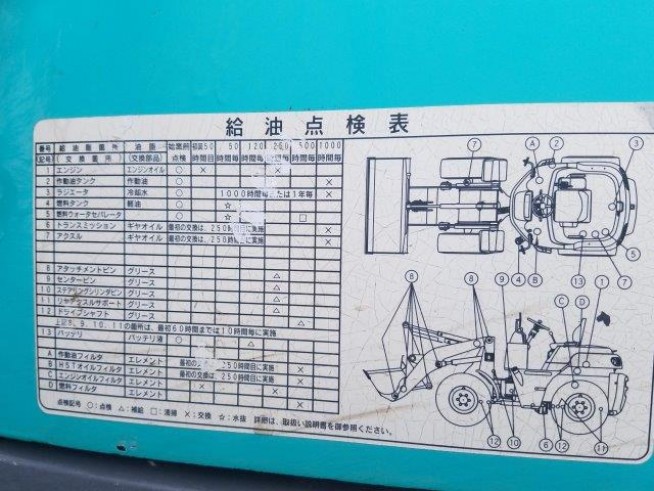 給油点検表
番号 給油箇所 油脂 始業前 初回50 50 120 200 500 1000
記号 (交換箇所) (交換部品) 点検 時間目 時間毎 時間毎 時間毎 時間毎 時間毎
1 エンジン エンジンオイル ○ × ×
2 作動油タンク 作動油 ○ ×
3 ラジエータ 冷却水 ○ 1000時間毎または1年毎 ×
4 燃料タンク 軽油 ○ ☆
5 燃料ウォータセパレータ ○ ☆ □
6 トランスミッション ギヤオイル 最初の交換は、250時間目に実施 ×
7 アクスル ギヤオイル 最初の交換は、250時間目に実施 ×
8 アタッチメントピン グリース △
9 センターピン グリース △
10 ステアリングシリンダピン グリース △
11 リヤアクスルサポート グリース △
12 ドライブシャフト グリース △
9,10,11の箇所は、最初60時間までは10時間毎に実施
13 バッテリ バッテリ液 ○ △
A 作動油フィルタ エレメント ×
B HSTオイルフィルタ エレメント 250時間目に実施 ×
C エンジンオイルフィルタ エレメント 最初の交換は、250時間目に実施 ×
D 燃料フィルタ エレメント × ×
点検記号 ○:点検 △:補給 □:清掃 ×:交換 ☆:水抜 詳細は、取扱い説明書を御参照ください。
7 A 2 3
4 B 13 7 5
8 8 9 C D 1
12 10 6 12 11